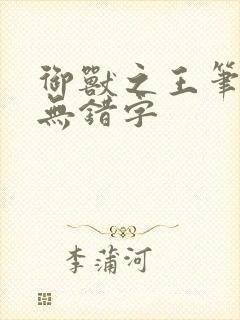 御獸之王筆
無錯字
李蒲河